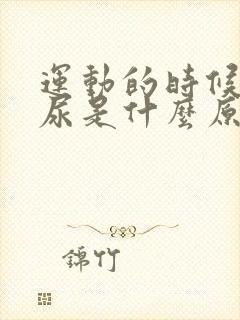 運動的時候
尿是什麼原
錦竹